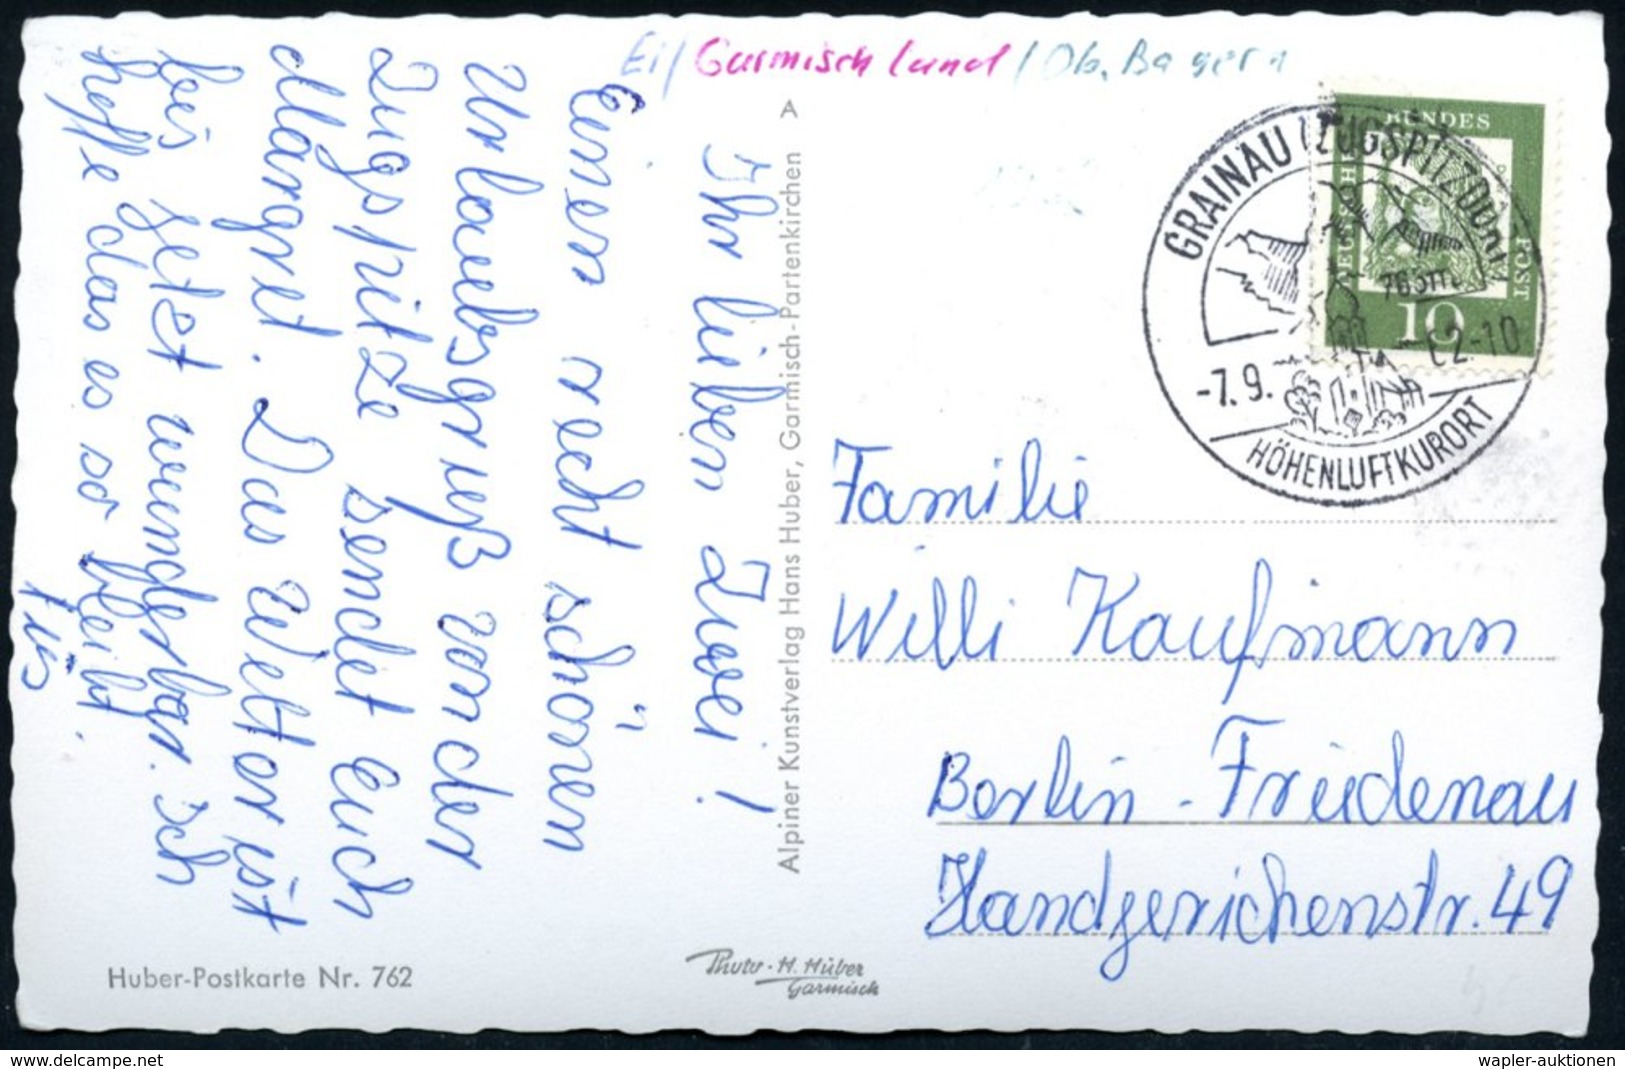 Ei/ Garmisch land / Ob. Bayern
Ihr lieben Zwei!
Einen recht schönen
Urlaubsgruß von der
Zugspitze sendet Euch
Margret. Das Wetter ist
bis jetzt wunderbar. Ich
hoffe das es so bleibt.
Tüs
A
Alpiner Kunstverlag Hans Huber, Garmisch-Partenkirchen
GRAINAU (ZUGSPITZDORF)
765m
-7.9. 62-10
HÖHENLUFTKURORT
BUNDES
POST
10
Familie
Willi Kaufmann
Berlin - Friedenau
Handjerichenstr. 49
Huber-Postkarte Nr. 762
Photo - H. Huber
Garmisch
www.delcampe.net
wapler-auktionen